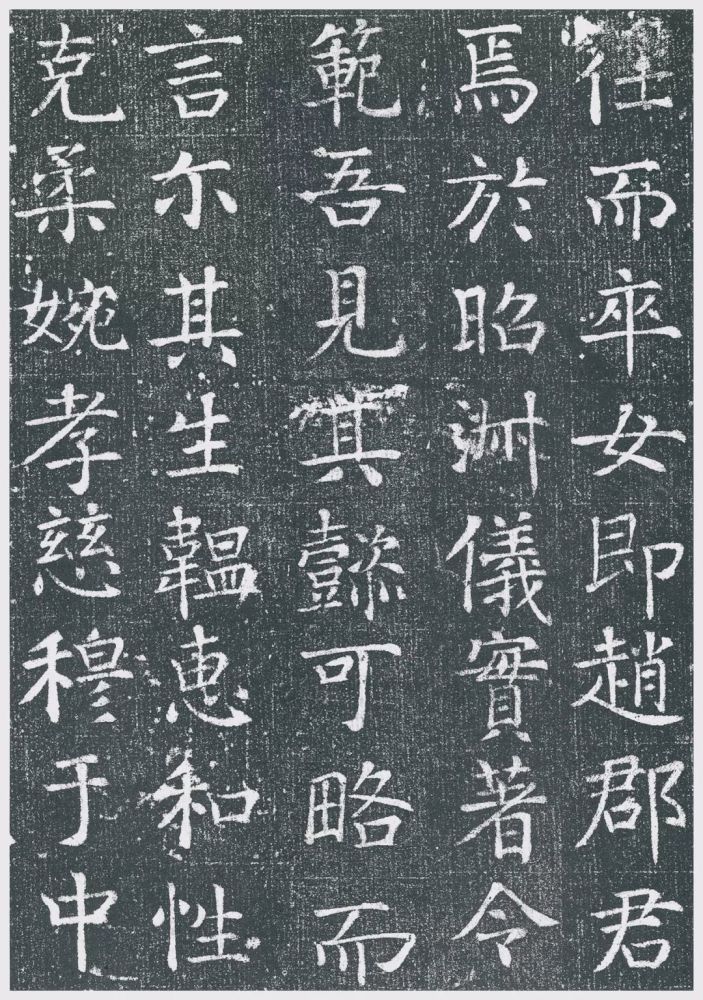 往而卒女即趙郡君
焉於昭淑儀實著令
範吾見其懿可略而
言尒其生韞惠和性
克柔婉孝慈穆于中